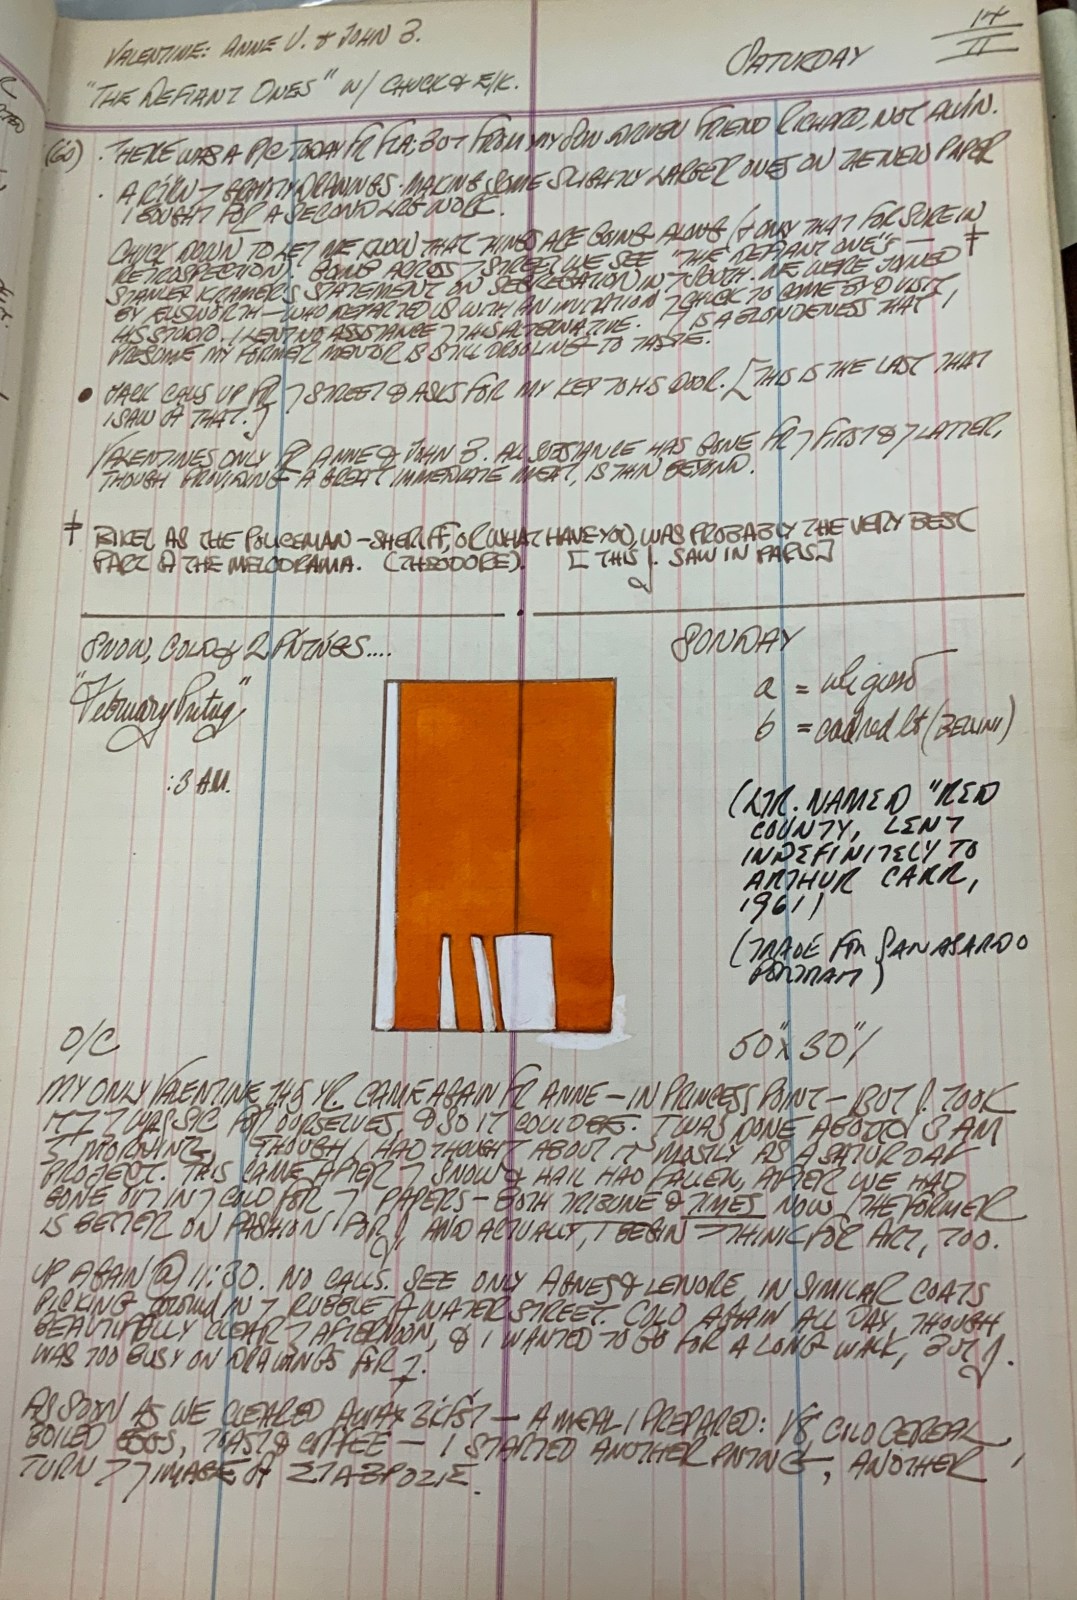 VALENTINE: ANNE V. & JOHN B.
14
II
SATURDAY
"THE DEFIANT ONES" W/ CHUCK & E/K.
THERE WAS A P/C TODAY FR FLA; BUT FROM MY SON DRIVEN FRIEND RICHARD, NOT ALVIN.
DRAWINGS. MAKING SOME SLIGHTLY LARGER ONES ON THE NEW PAPER
I BOUGHT FOR A SECOND LRG WORK.
CHUCK DOWN TO LET ME KNOW THAT THINGS ARE GOING ALONG (& ONLY THAT FOR SURE IN
RETROSPECTION). GOING ACROSS 7 STREET WE SEE "THE DEFIANT ONE'S — ‡
STANLEY KRAMER'S STATEMENT ON SEGREGATION IN 7 SOUTH. WE WERE JOINED
BY ELLSWORTH — WHO DEPARTED US WITH AN INVITATION 7 CHUCK TO COME BY & VISIT
HIS STUDIO. I LENT NO ASSISTANCE 7 THIS ALTERNATIVE. IS A BLONDENESS THAT I
PRESUME MY FORMER MENTOR IS STILL DROOLING TO TASTE.
• JACK CALLS UP FR 7 STREET & ASKS FOR MY KEY TO HIS DOOR. [THIS IS THE LAST THAT
I SAW OF THAT.]
VALENTINES ONLY FR ANNE & JOHN B. ALL SUBSTANCE HAS GONE FR 7 FIRST & 7 LATTER,
THOUGH PROVIDING A GREAT IMMEDIATE MEAT, IS THIN BEYOND.
‡ BIKEL AS THE POLICEMAN-SHERIFF, OR WHAT HAVE YOU, WAS PROBABLY THE VERY BEST
PART OF THE MELODRAMA. (THEODORE). [THIS J. SAW IN PARIS]
SNOW, COLD & 2 PNTNGS....
SUNDAY
"February Pntng"
:3 AM.
a = wh gesso
b = cad red lt (BELLINI)
(LTR. NAMED "RED
COUNTY, LENT
INDEFINITELY TO
ARTHUR CARR,
1961)
(TRADE FOR SANASARDO
PORTRAIT)
O/C
50" x 30"/
MY ONLY VALENTINE THIS YR. CAME AGAIN FR ANNE — IN PRINCESS POINT — BUT J. TOOK
FOR OURSELVES, & SO IT COULD BE. TWAS DONE ABOUT 3 AM
7 MORNING, THOUGH I HAD THOUGHT ABOUT IT MOSTLY AS A SATURDAY
PROJECT. THIS CAME AFTER 7 SNOW & HAIL HAD FALLEN, AFTER WE HAD
GONE OUT IN 7 COLD FOR 7 PAPERS — BOTH TRIBUNE & TIMES NOW. THE FORMER
IS BETTER ON FASHION FOR J, AND ACTUALLY, I BEGIN 7 THINK FOR ART, TOO.
UP AGAIN @ 11:30. NO CALLS. SEE ONLY AGNES & LENORE, IN SIMILAR COATS
PICKING around IN 7 RUBBLE OF WATER STREET. COLD AGAIN ALL DAY, THOUGH
BEAUTIFULLY CLEAR 7 AFTERNOON, & I WANTED TO GO FOR A LONG WALK, BUT J.
WAS TOO BUSY ON DRAWINGS FOR 7.
AS SOON AS WE CLEARED AWAY BKFST — A MEAL I PREPARED: V8, COLD CEREAL,
BOILED EGGS, TOAST & COFFEE — I STARTED ANOTHER PNTNG, ANOTHER
TURN 7 7 IMAGE OF